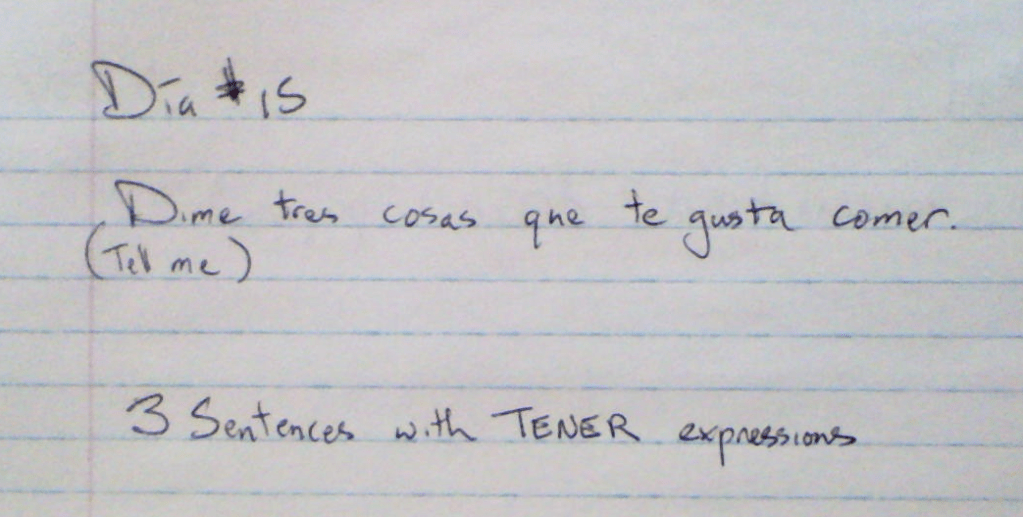 Día #15
Dime tres cosas que te gusta comer.
(Tell me)
3 Sentences with TENER expressions